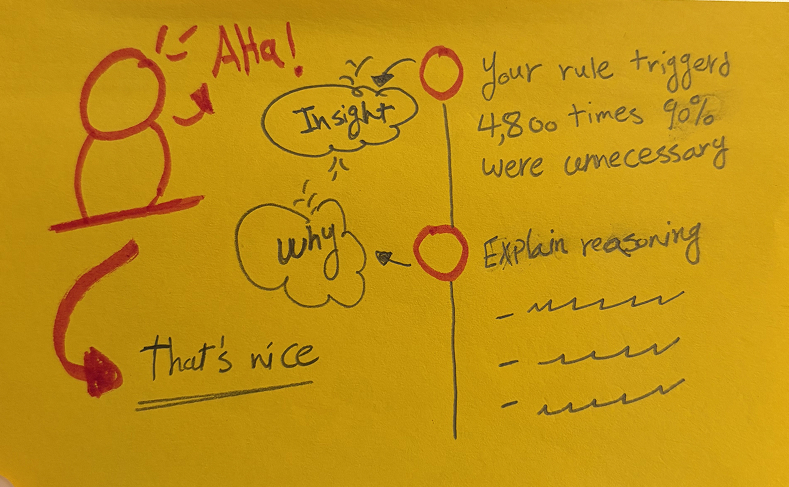 AHa!
Insight
Your rule triggers
4,800 times 90%
were unnecessary
Why
Explain reasoning
That's nice